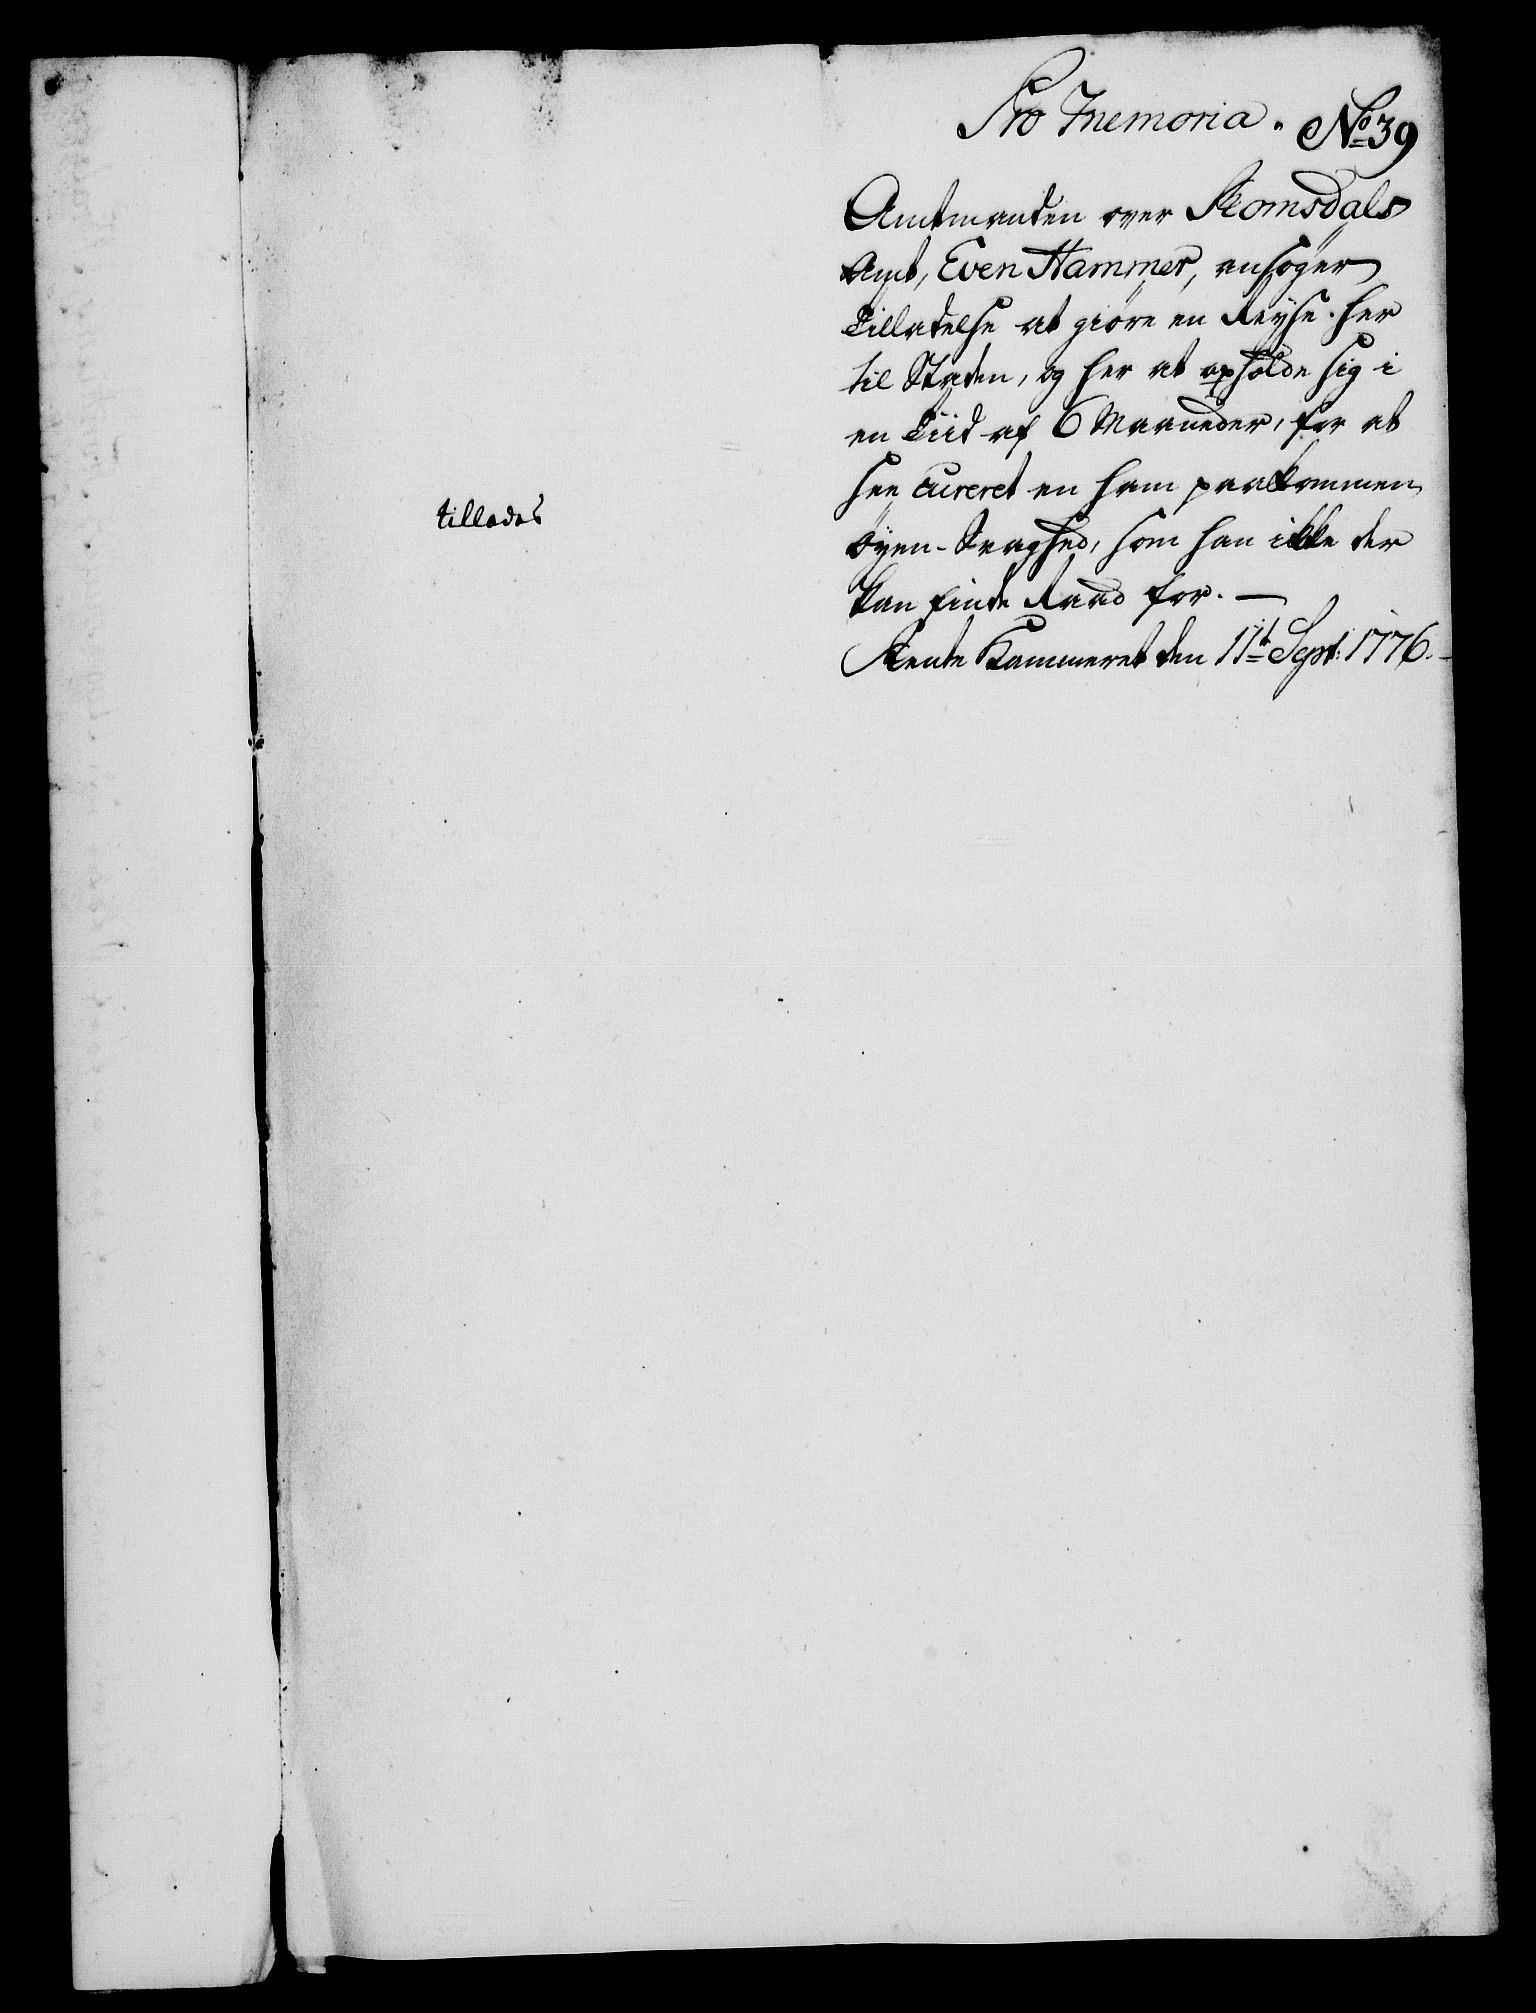 Pro Memoria. No 39
Amtmanden over Romsdals
Amt, Even Hammer, ansøger
Tilladelse at giøre en Reyse her
til Staden, og her at opholde sig i
en Tiid af 6 Maaneder, for at
see cureret en ham paakommen
Øyen-Svaghed, som han ikke der
kan finde Raad for. —
Rente Kammeret den 11t Sept: 1776. -
tillades